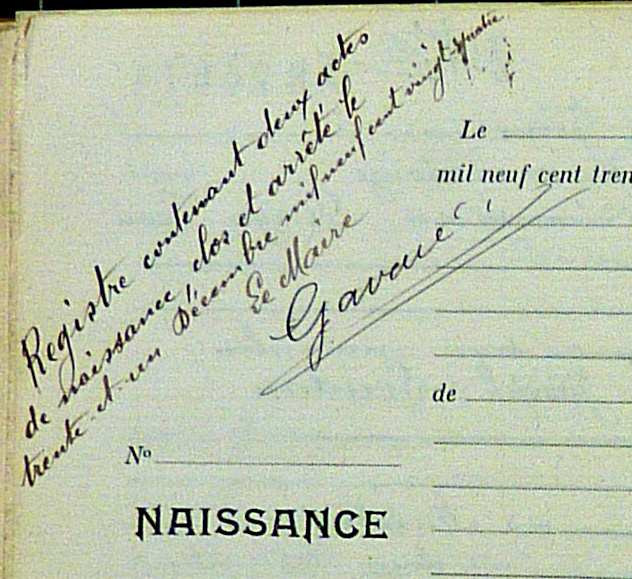 Registre contenant deux actes
de naissance, clos et arrêté le
trente et un Décembre mil neuf cent vingt-quatre
Le Maire
Gavoué
Le
mil neuf cent tren
de
No
NAISSANCE